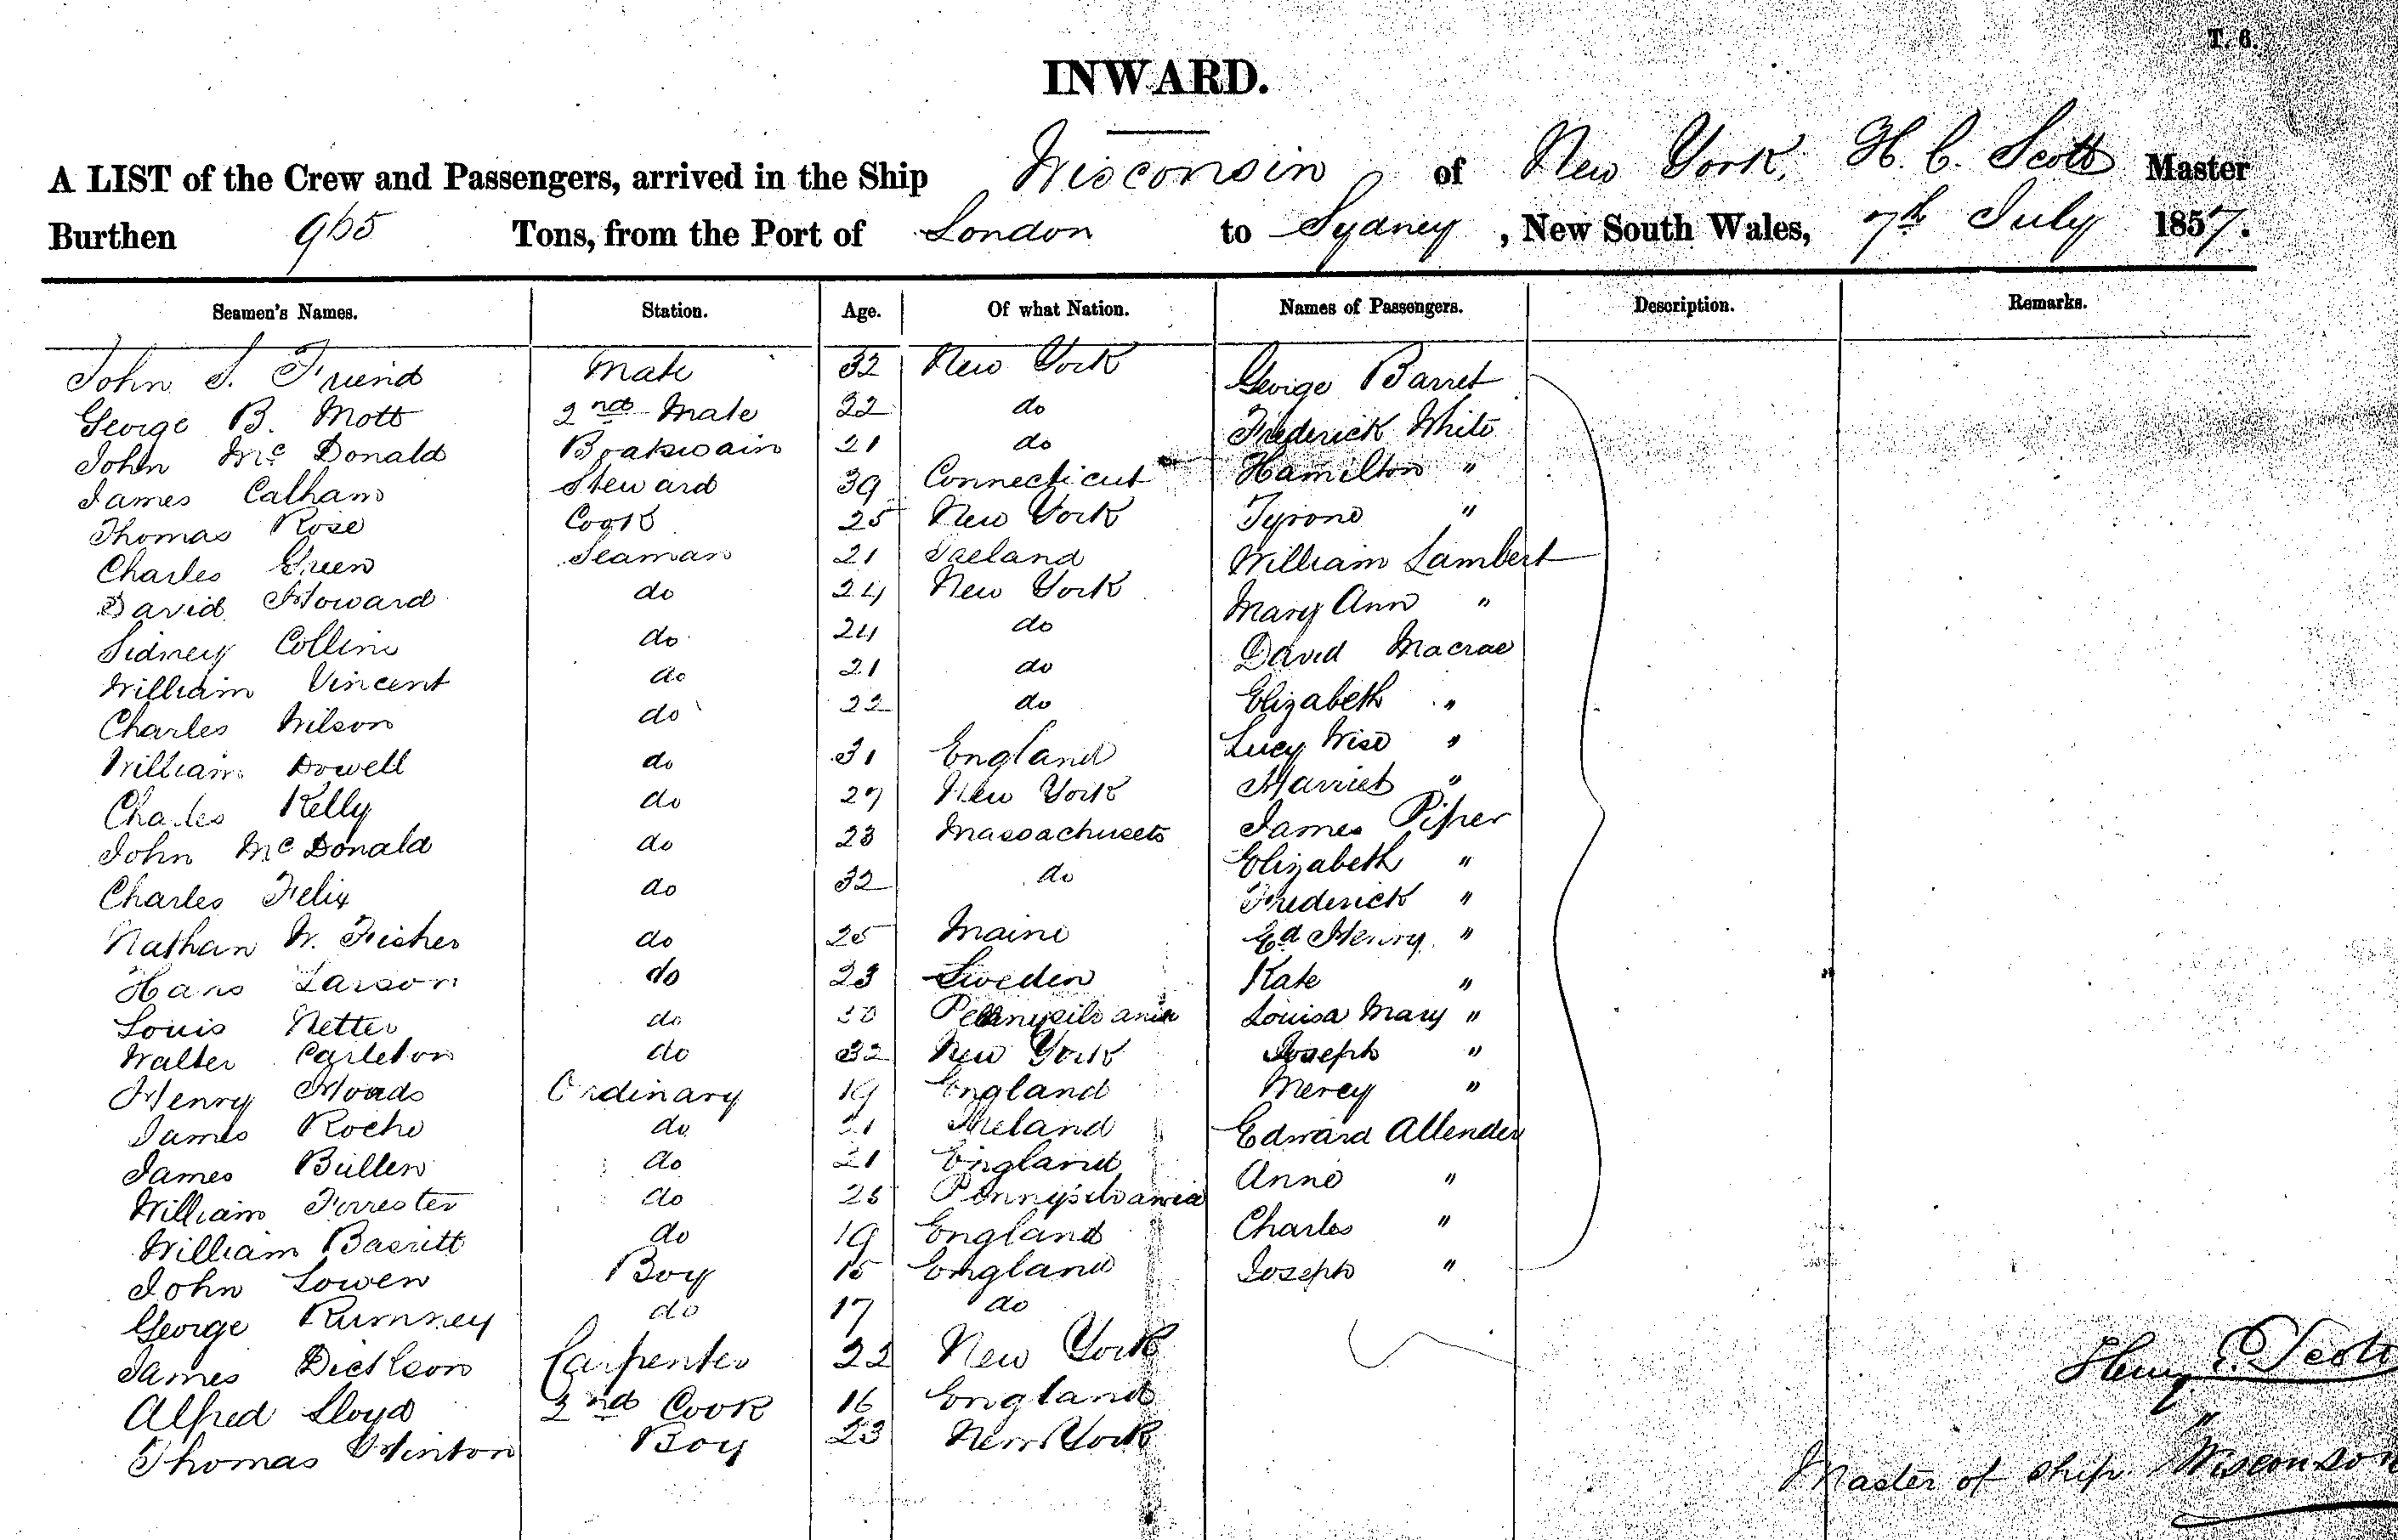 T. 6.
INWARD.
A LIST of the Crew and Passengers, arrived in the Ship Wisconsin of New York, H. C. Scott Master
Burthen 965 Tons, from the Port of London to Sydney, New South Wales, 7th July 1857.
Seamen's Names. Station. Age. Of what Nation. Names of Passengers. Description. Remarks.
John S. Friend Mate 32 New York George Barret
George B. Mott 2nd Mate 22 do Frederick White
John McDonald Boatswain 21 do Hamilton "
James Calham Steward 39 Connecticut Tyrone "
Thomas Rose Cook 25 New York William Lambert
Charles Green Seaman 21 Ireland Mary Ann "
David Howard do 24 New York David Macrae
Sidney Collins do 24 do Elizabeth "
William Vincent do 21 do Lucy Wise "
Charles Wilson do 22 do Harriet "
William Dowell do 31 England James Piper
Charles Kelly do 27 New York Elizabeth "
John McDonald do 23 Massachusets Frederick "
Charles Felix do 32 do Ed Henry "
Nathan W. Fisher do 25 Maine Kate "
Hans Larson do 23 Sweden Louisa Mary "
Louis Netter do 30 Pennysilvania Joseph "
Walter Carleton do 32 New York Mercy "
Henry Hoads Ordinary 19 England Edward Allender
James Roche do 21 Ireland Anne "
James Bullen do 21 England Charles "
William Forrester do 25 Pennysilvania Joseph "
William Bassitt do 19 England
John Lowen Boy 15 England
George Rumney do 17 do
James Dickson Carpenter 22 New York
Alfred Lloyd 2nd Cook 16 England
Thomas Hinton Boy 23 New York
Henry C. Scott
Master of Ship Wisconson